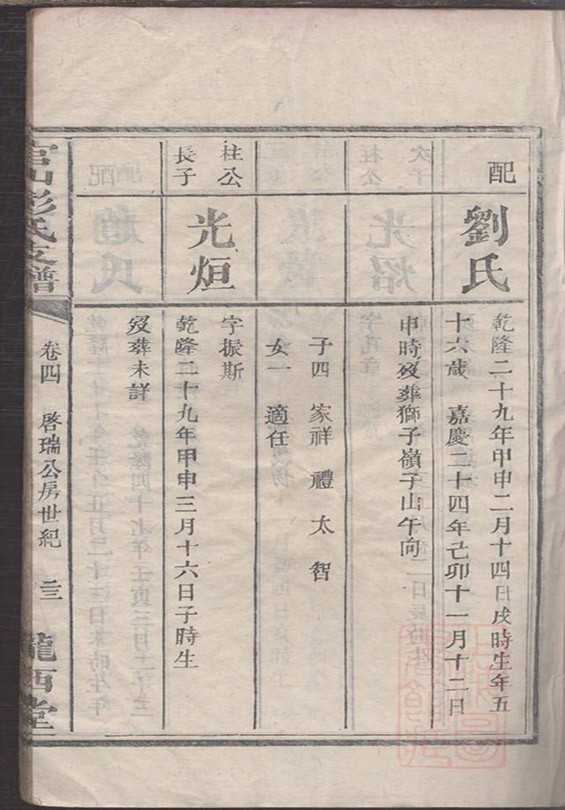 配
劉氏
乾隆二十九年甲申二月十四日戌時生年五
十六歲 嘉慶二十四年己卯十一月十二日
申時歿葬獅子嶺子山午向
子四 家祥 禮 太 智
女一 適任
柱公
長子
光烜
字振斯
乾隆二十九年甲申三月十六日子時生
歿葬未詳
官山彭氏支譜
卷四 啓瑞公房世紀 二三
隴西堂